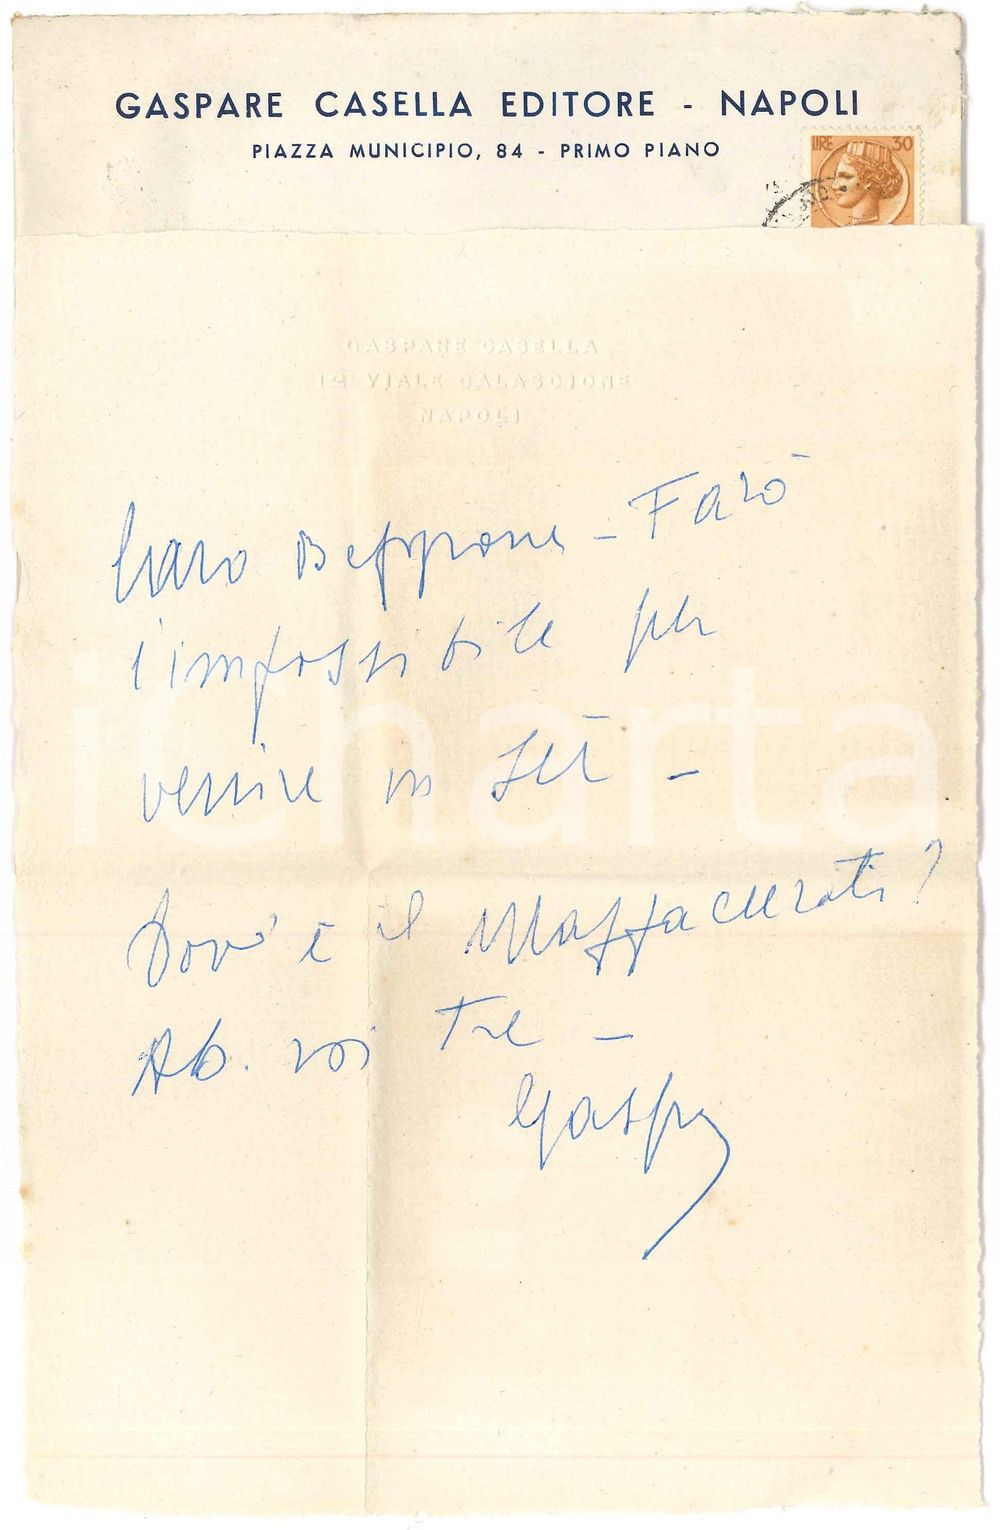 GASPARE CASELLA EDITORE - NAPOLI
PIAZZA MUNICIPIO, 84 - PRIMO PIANO
LIRE 30
GASPARE CASELLA
12 VIALE CALASCIONE
NAPOLI
Caro Beppone - Farò
l'impossibile per
venire in set -
Dov'è il Maffaccerati?
Ab. voi tre -
Gaspare
iCharta